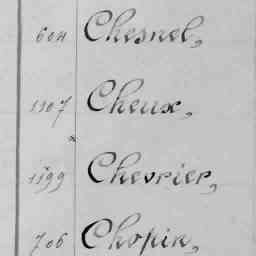 604 Chesnel,
1107 Cheux,
1199 Chevrier,
706 Chopin,